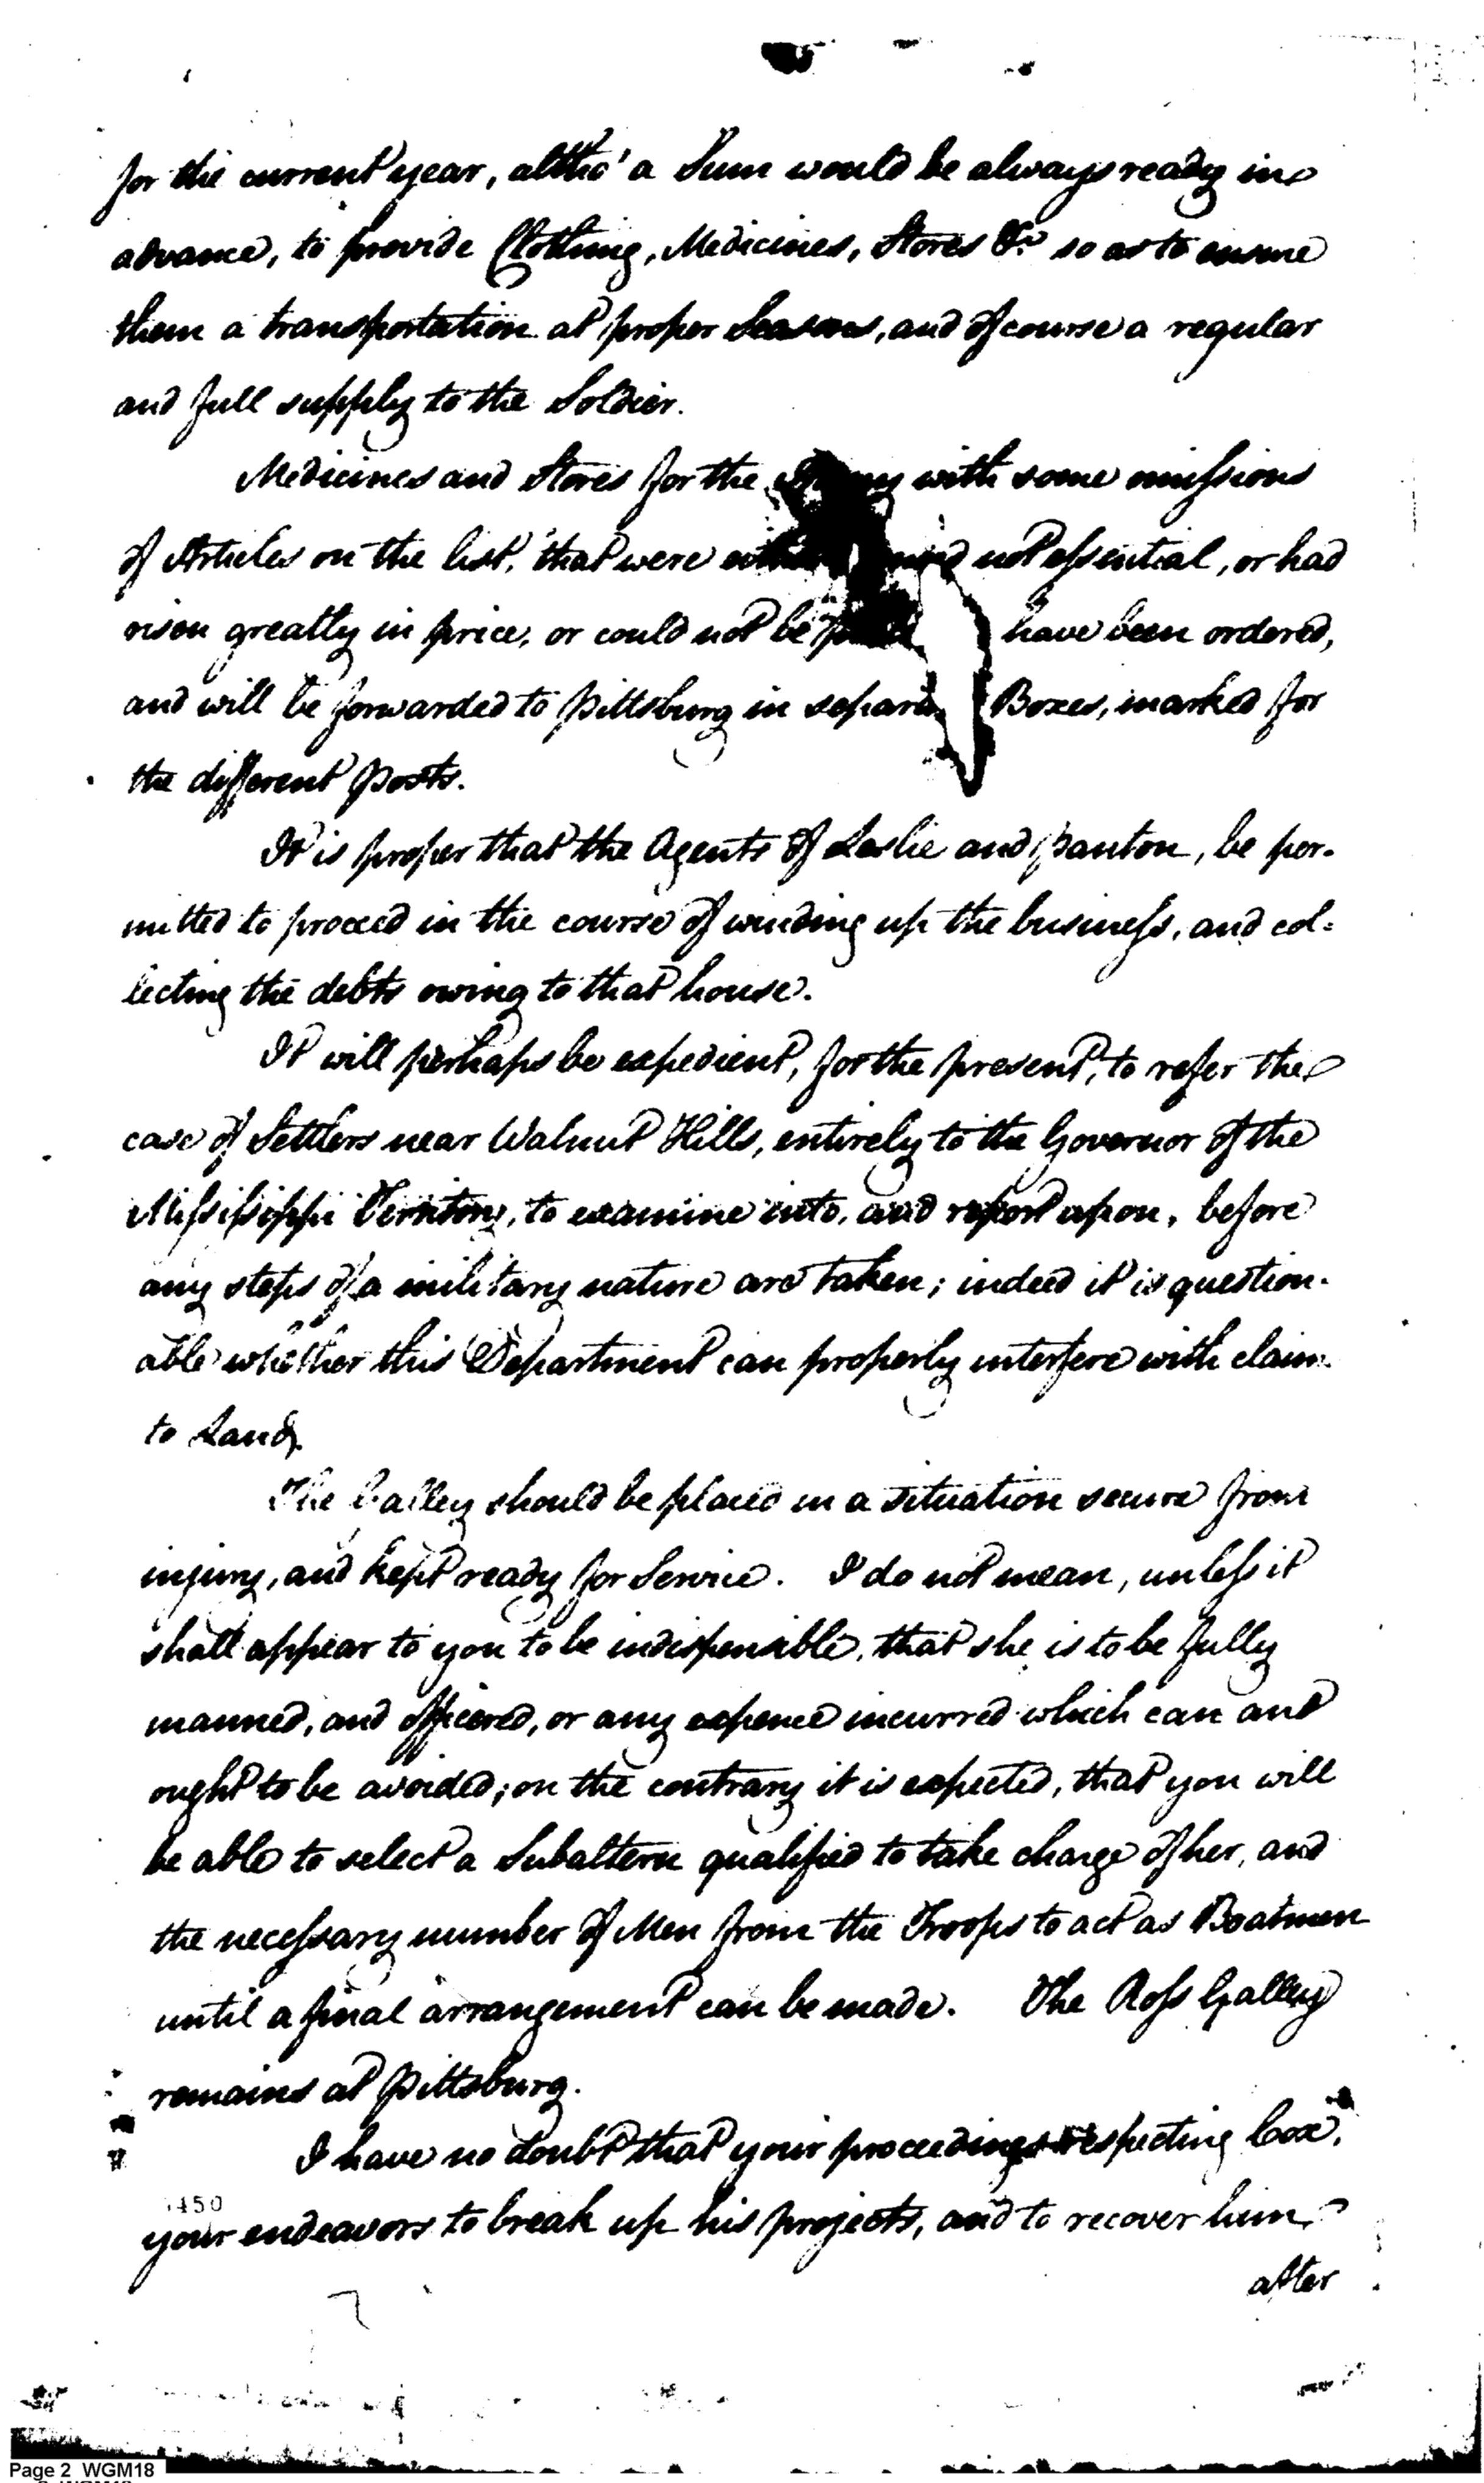 for the current year, altho' a Sum would be always ready in
advance, to provide Clothing, Medicines, Stores &c. so as to ensure
them a transportation at proper Seasons, and of course a regular
and full supply to the Soldier.
Medicines and Stores for the Army with some omissions
of Articles on the list, that were not essential, or had
risen greatly in price, or could not be have been ordered,
and will be forwarded to Pittsburg in separate Boxes, marked for
the different Posts.
It is proper that the Agents of Leslie and Panton, be per-
mitted to proceed in the course of winding up the business, and col=
lecting the debts owing to that house.
It will perhaps be expedient, for the present, to refer the
case of Settlers near Walnut Hills, entirely to the Governor of the
Mississippi Territory, to examine into, and report upon, before
any steps of a military nature are taken; indeed it is question-
able whether this Department can properly interfere with claim
to Land.
The Galley should be placed in a situation secure from
injury, and kept ready for Service. I do not mean, unless it
shall appear to you to be indispensible, that she is to be fully
manned, and officered, or any expence incurred which can and
ought to be avoided; on the contrary it is expected, that you will
be able to select a Subaltern qualified to take charge of her, and
the necessary number of Men from the Troops to act as Boatmen
until a final arrangement can be made. The Ross Galley
remains at Pittsburg.
I have no doubt that your proceedings respecting Cox,
1450
your endeavors to break up his projects, and to recover him
after
Page 2 WGM18